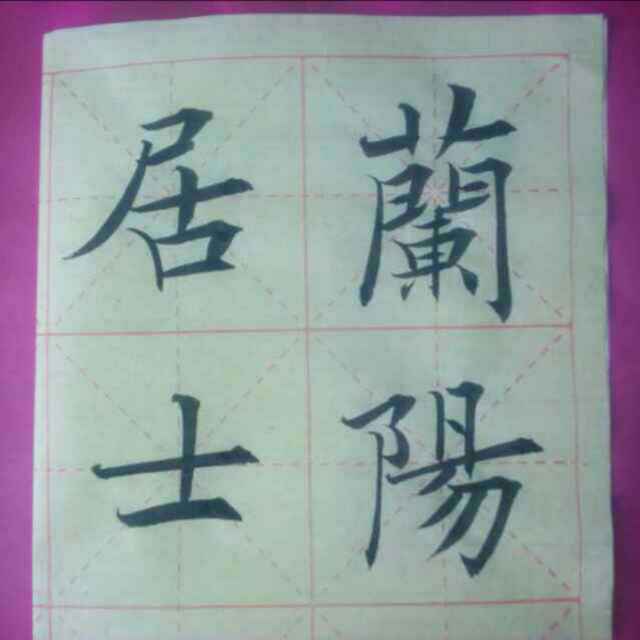 蘭陽
居士